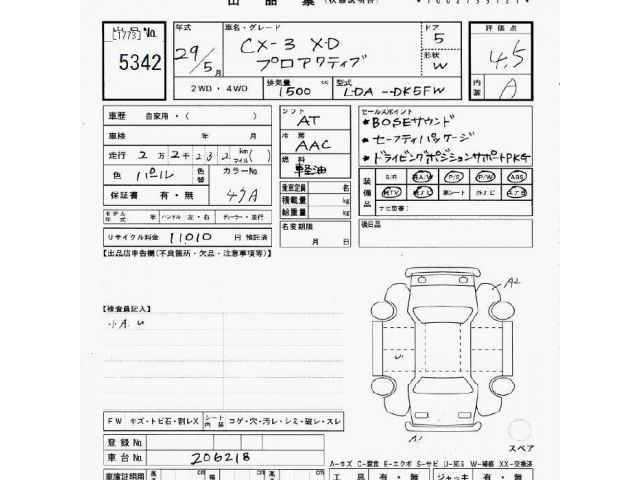 出品票 (状態説明書)
[1773] 出品No. 5342
年式 29/5月
車名・グレード CX-3 XD プロアクティブ
ドア 5
形状 W
評価点 4,5
内装 A
2WD・4WD
排気量 1500 cc
型式 LDA--DK5FW
車歴 自家用・( )
シフト AT
セールスポイント
*BOSEサウンド
車検 年 月
冷房 AAC
*セーフティパッケージ
走行 2万2千232 km/マイル( )
燃料 軽油
*ドライビングポジションサポートPKG
色 パール
色替
カラーNo. 47A
保証書 有・無
乗車定員 名
積載量 kg
総重量 kg
装備品 S/R A/W P/S P/W ABS
純TV 純ナビ 革シート 外ナビ エアB
ナビ型番:
モデル年式 年 ハンドル 左・右 ディーラー・並行
名変期限 月 日
後日品
リサイクル料金 11010 円 預託済
【出品店申告欄(不良箇所・欠品・注意事項等)】
【検査員記入】
小A.U
A2
U
A1
スペア
FW キズ・トビ石・割レX シート内装 コゲ・穴・汚レ・シミ・破レ・スレ
登録No.
車台No. 206218
A-キズ C-腐食 E-エクボ S-サビ U-凹ミ W-補修 XX-交換済
車庫証明用 長 cm 幅 cm 高 cm
工具 有・無 ジャッキ 有・無